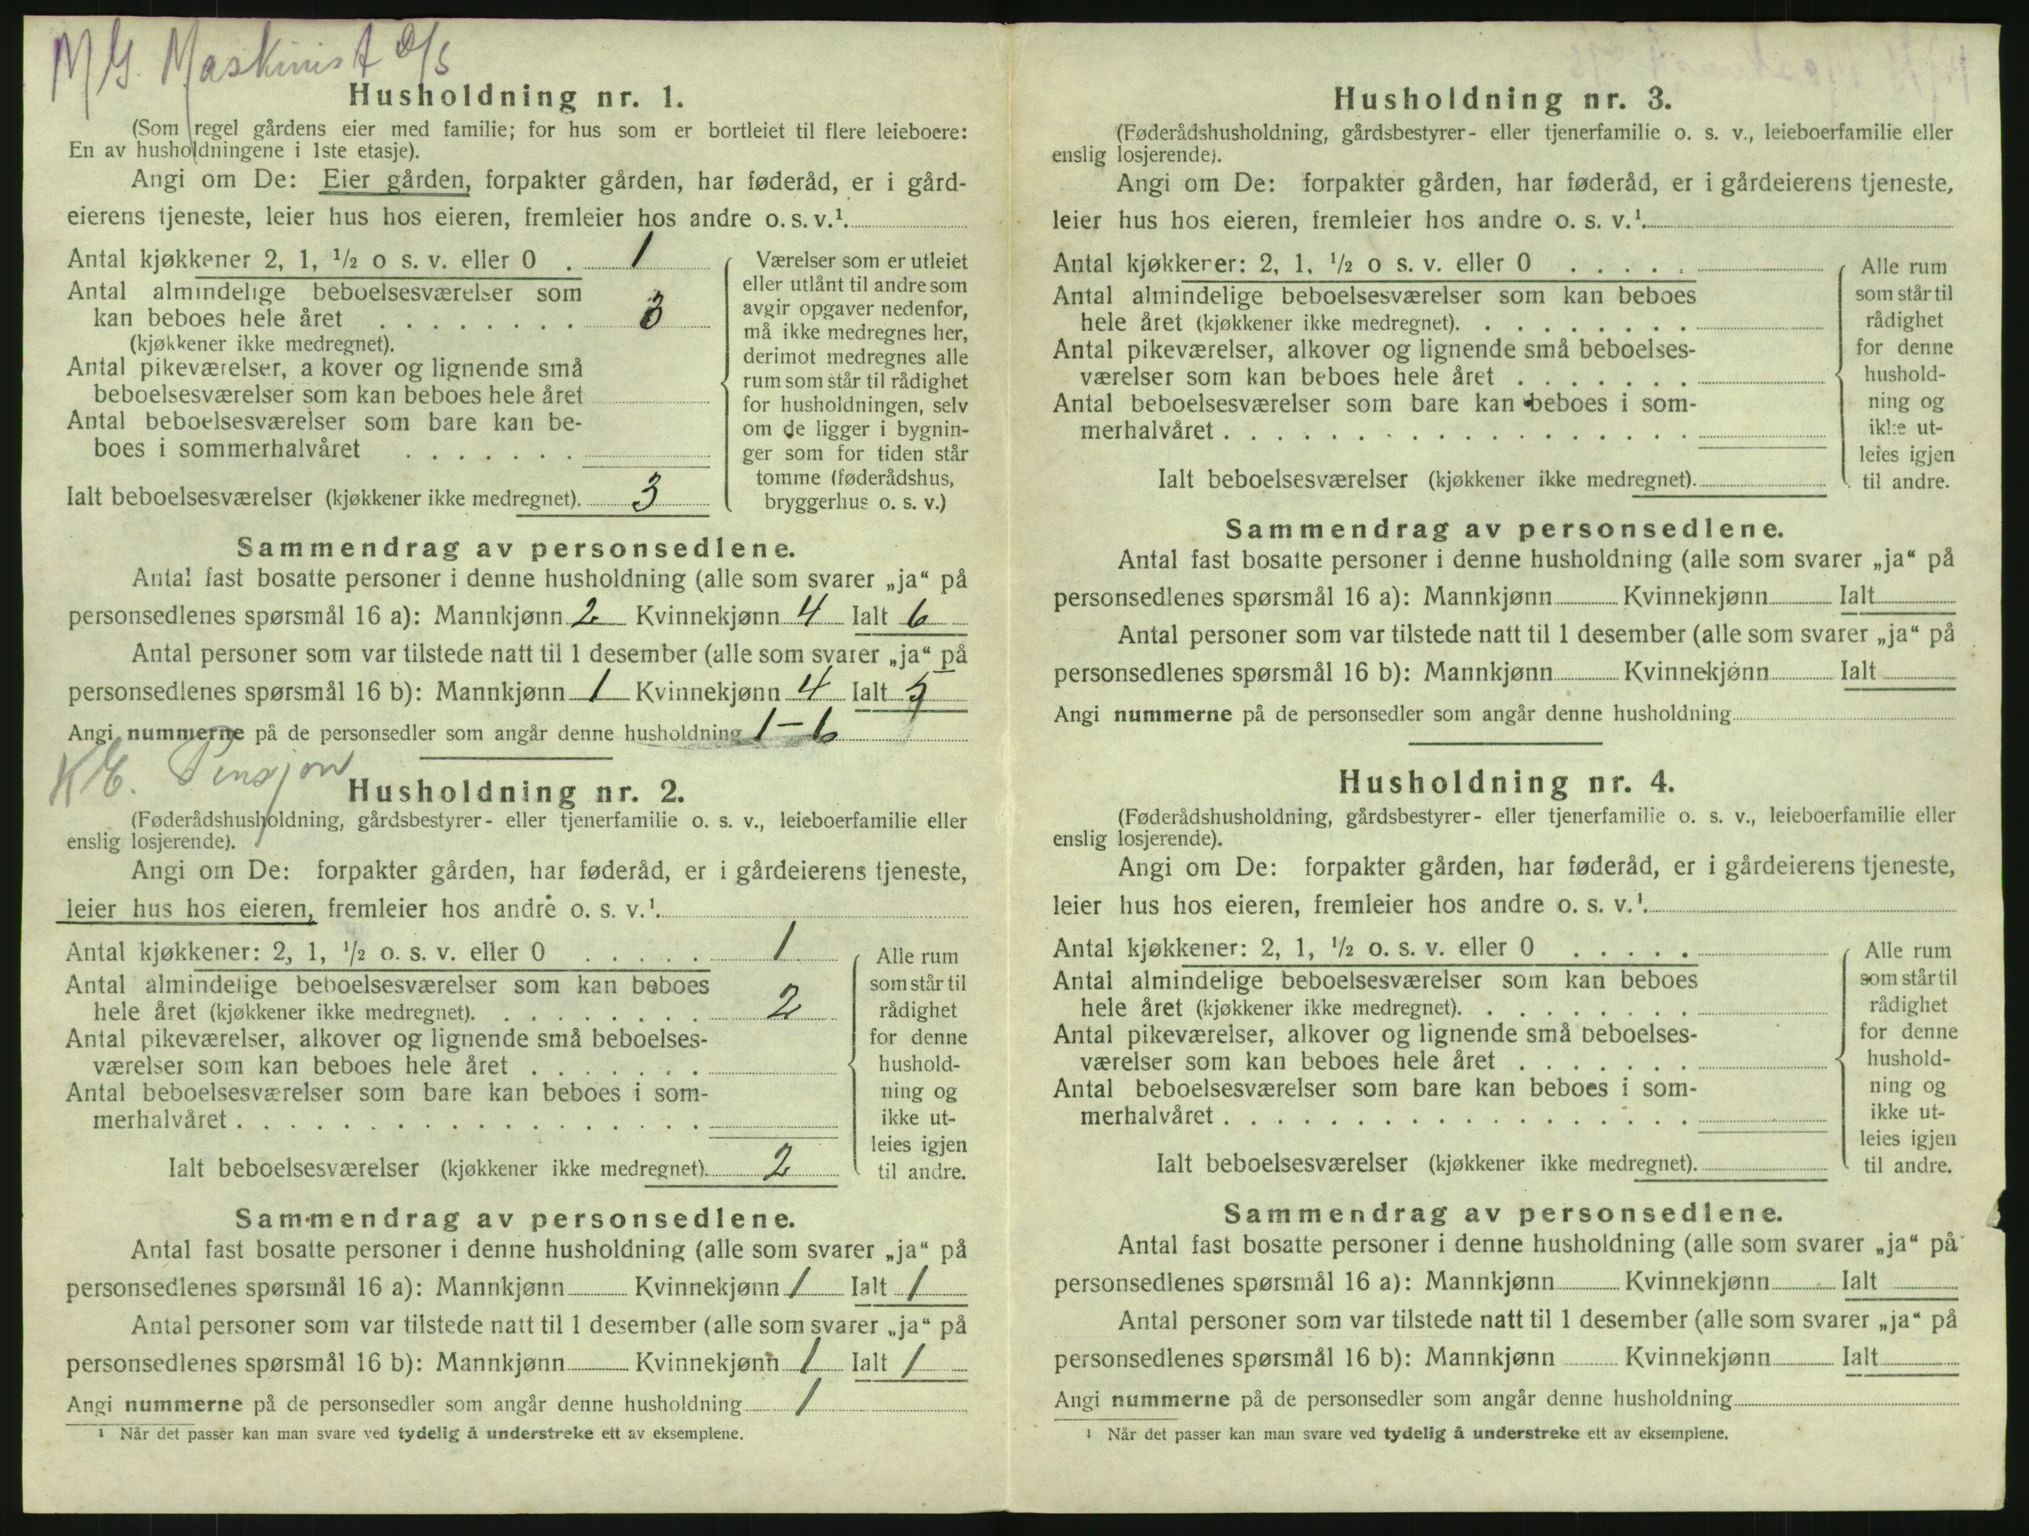 M G. Maskinist d/s
Husholdning nr. 1.
(Som regel gårdens eier med familie; for hus som er bortleiet til flere leieboere:
En av husholdningene i 1ste etasje).
Angi om De: Eier gården, forpakter gården, har føderåd, er i gård-
eierens tjeneste, leier hus hos eieren, fremleier hos andre o. s. v.¹.
Antal kjøkkener 2, 1, ½ o s. v. eller 0 . 1
Antal almindelige beboelsesværelser som
kan beboes hele året . . . . . . . . 3
(kjøkkener ikke medregnet).
Antal pikeværelser, a kover og lignende små
beboelsesværelser som kan beboes hele året
Antal beboelsesværelser som bare kan be-
boes i sommerhalvåret . . . . . . .
Ialt beboelsesværelser (kjøkkener ikke medregnet). 3
Værelser som er utleiet
eller utlånt til andre som
avgir opgaver nedenfor,
må ikke medregnes her,
derimot medregnes alle
rum som står til rådighet
for husholdningen, selv
om de ligger i bygnin-
ger som for tiden står
tomme (føderådshus,
bryggerhus o. s. v.)
Sammendrag av personsedlene.
Antal fast bosatte personer i denne husholdning (alle som svarer „ja“ på
personsedlenes spørsmål 16 a): Mannkjønn 2 Kvinnekjønn 4 Ialt 6
Antal personer som var tilstede natt til 1 desember (alle som svarer „ja“ på
personsedlenes spørsmål 16 b): Mannkjønn 1 Kvinnekjønn 4 Ialt 5
Angi nummerne på de personsedler som angår denne husholdning 1-6
K E. Pensjon
Husholdning nr. 2.
(Føderådshusholdning, gårdsbestyrer- eller tjenerfamilie o. s. v., leieboerfamilie eller
enslig losjerende).
Angi om De: forpakter gården, har føderåd, er i gårdeierens tjeneste,
leier hus hos eieren, fremleier hos andre o. s. v.¹.
Antal kjøkkener: 2, 1, ½ o. s. v. eller 0 . . . . . 1
Antal almindelige beboelsesværelser som kan beboes
hele året (kjøkkener ikke medregnet). . . . . . . . . 2
Antal pikeværelser, alkover og lignende små beboelses-
værelser som kan beboes hele året . . . . . . .
Antal beboelsesværelser som bare kan beboes i som-
merhalvåret . . . . . . . . . . . . . . . . . .
Ialt beboelsesværelser (kjøkkener ikke medregnet). 2
Alle rum
som står til
rådighet
for denne
hushold-
ning og
ikke ut-
leies igjen
til andre.
Sammendrag av personsedlene.
Antal fast bosatte personer i denne husholdning (alle som svarer „ja“ på
personsedlenes spørsmål 16 a): Mannkjønn Kvinnekjønn 1 Ialt 1
Antal personer som var tilstede natt til 1 desember (alle som svarer „ja“ på
personsedlenes spørsmål 16 b): Mannkjønn Kvinnekjønn 1 Ialt 1
Angi nummerne på de personsedler som angår denne husholdning 1
¹ Når det passer kan man svare ved tydelig å understreke ett av eksemplene.
Husholdning nr. 3.
(Føderådshusholdning, gårdsbestyrer- eller tjenerfamilie o. s. v., leieboerfamilie eller
enslig losjerende).
Angi om De: forpakter gården, har føderåd, er i gårdeierens tjeneste,
leier hus hos eieren, fremleier hos andre o. s. v.¹.
Antal kjøkkener: 2, 1, ½ o s. v. eller 0 . . . . .
Antal almindelige beboelsesværelser som kan beboes
hele året (kjøkkener ikke medregnet). . . . . . . . .
Antal pikeværelser, alkover og lignende små beboelses-
værelser som kan beboes hele året . . . . . . .
Antal beboelsesværelser som bare kan beboes i som-
merhalvåret . . . . . . . . . . . . . . . . . .
Ialt beboelsesværelser (kjøkkener ikke medregnet).
Alle rum
som står til
rådighet
for denne
hushold-
ning og
ikke ut-
leies igjen
til andre.
Sammendrag av personsedlene.
Antal fast bosatte personer i denne husholdning (alle som svarer „ja“ på
personsedlenes spørsmål 16 a): Mannkjønn Kvinnekjønn Ialt
Antal personer som var tilstede natt til 1 desember (alle som svarer „ja“ på
personsedlenes spørsmål 16 b): Mannkjønn Kvinnekjønn Ialt
Angi nummerne på de personsedler som angår denne husholdning
Husholdning nr. 4.
(Føderådshusholdning, gårdsbestyrer- eller tjenerfamilie o. s. v., leieboerfamilie eller
enslig losjerende).
Angi om De: forpakter gården, har føderåd, er i gårdeierens tjeneste,
leier hus hos eieren, fremleier hos andre o. s. v.¹.
Antal kjøkkener: 2, 1, ½ o. s. v. eller 0 . . . . .
Antal almindelige beboelsesværelser som kan beboes
hele året (kjøkkener ikke medregnet). . . . . . . . .
Antal pikeværelser, alkover og lignende små beboelses-
værelser som kan beboes hele året . . . . . . .
Antal beboelsesværelser som bare kan beboes i som-
merhalvåret . . . . . . . . . . . . . . . . . .
Ialt beboelsesværelser (kjøkkener ikke medregnet).
Alle rum
som står til
rådighet
for denne
hushold-
ning og
ikke ut-
leies igjen
til andre.
Sammendrag av personsedlene.
Antal fast bosatte personer i denne husholdning (alle som svarer „ja“ på
personsedlenes spørsmål 16 a): Mannkjønn Kvinnekjønn Ialt
Antal personer som var tilstede natt til 1 desember (alle som svarer „ja“ på
personsedlenes spørsmål 16 b): Mannkjønn Kvinnekjønn Ialt
Angi nummerne på de personsedler som angår denne husholdning
¹ Når det passer kan man svare ved tydelig å understreke ett av eksemplene.